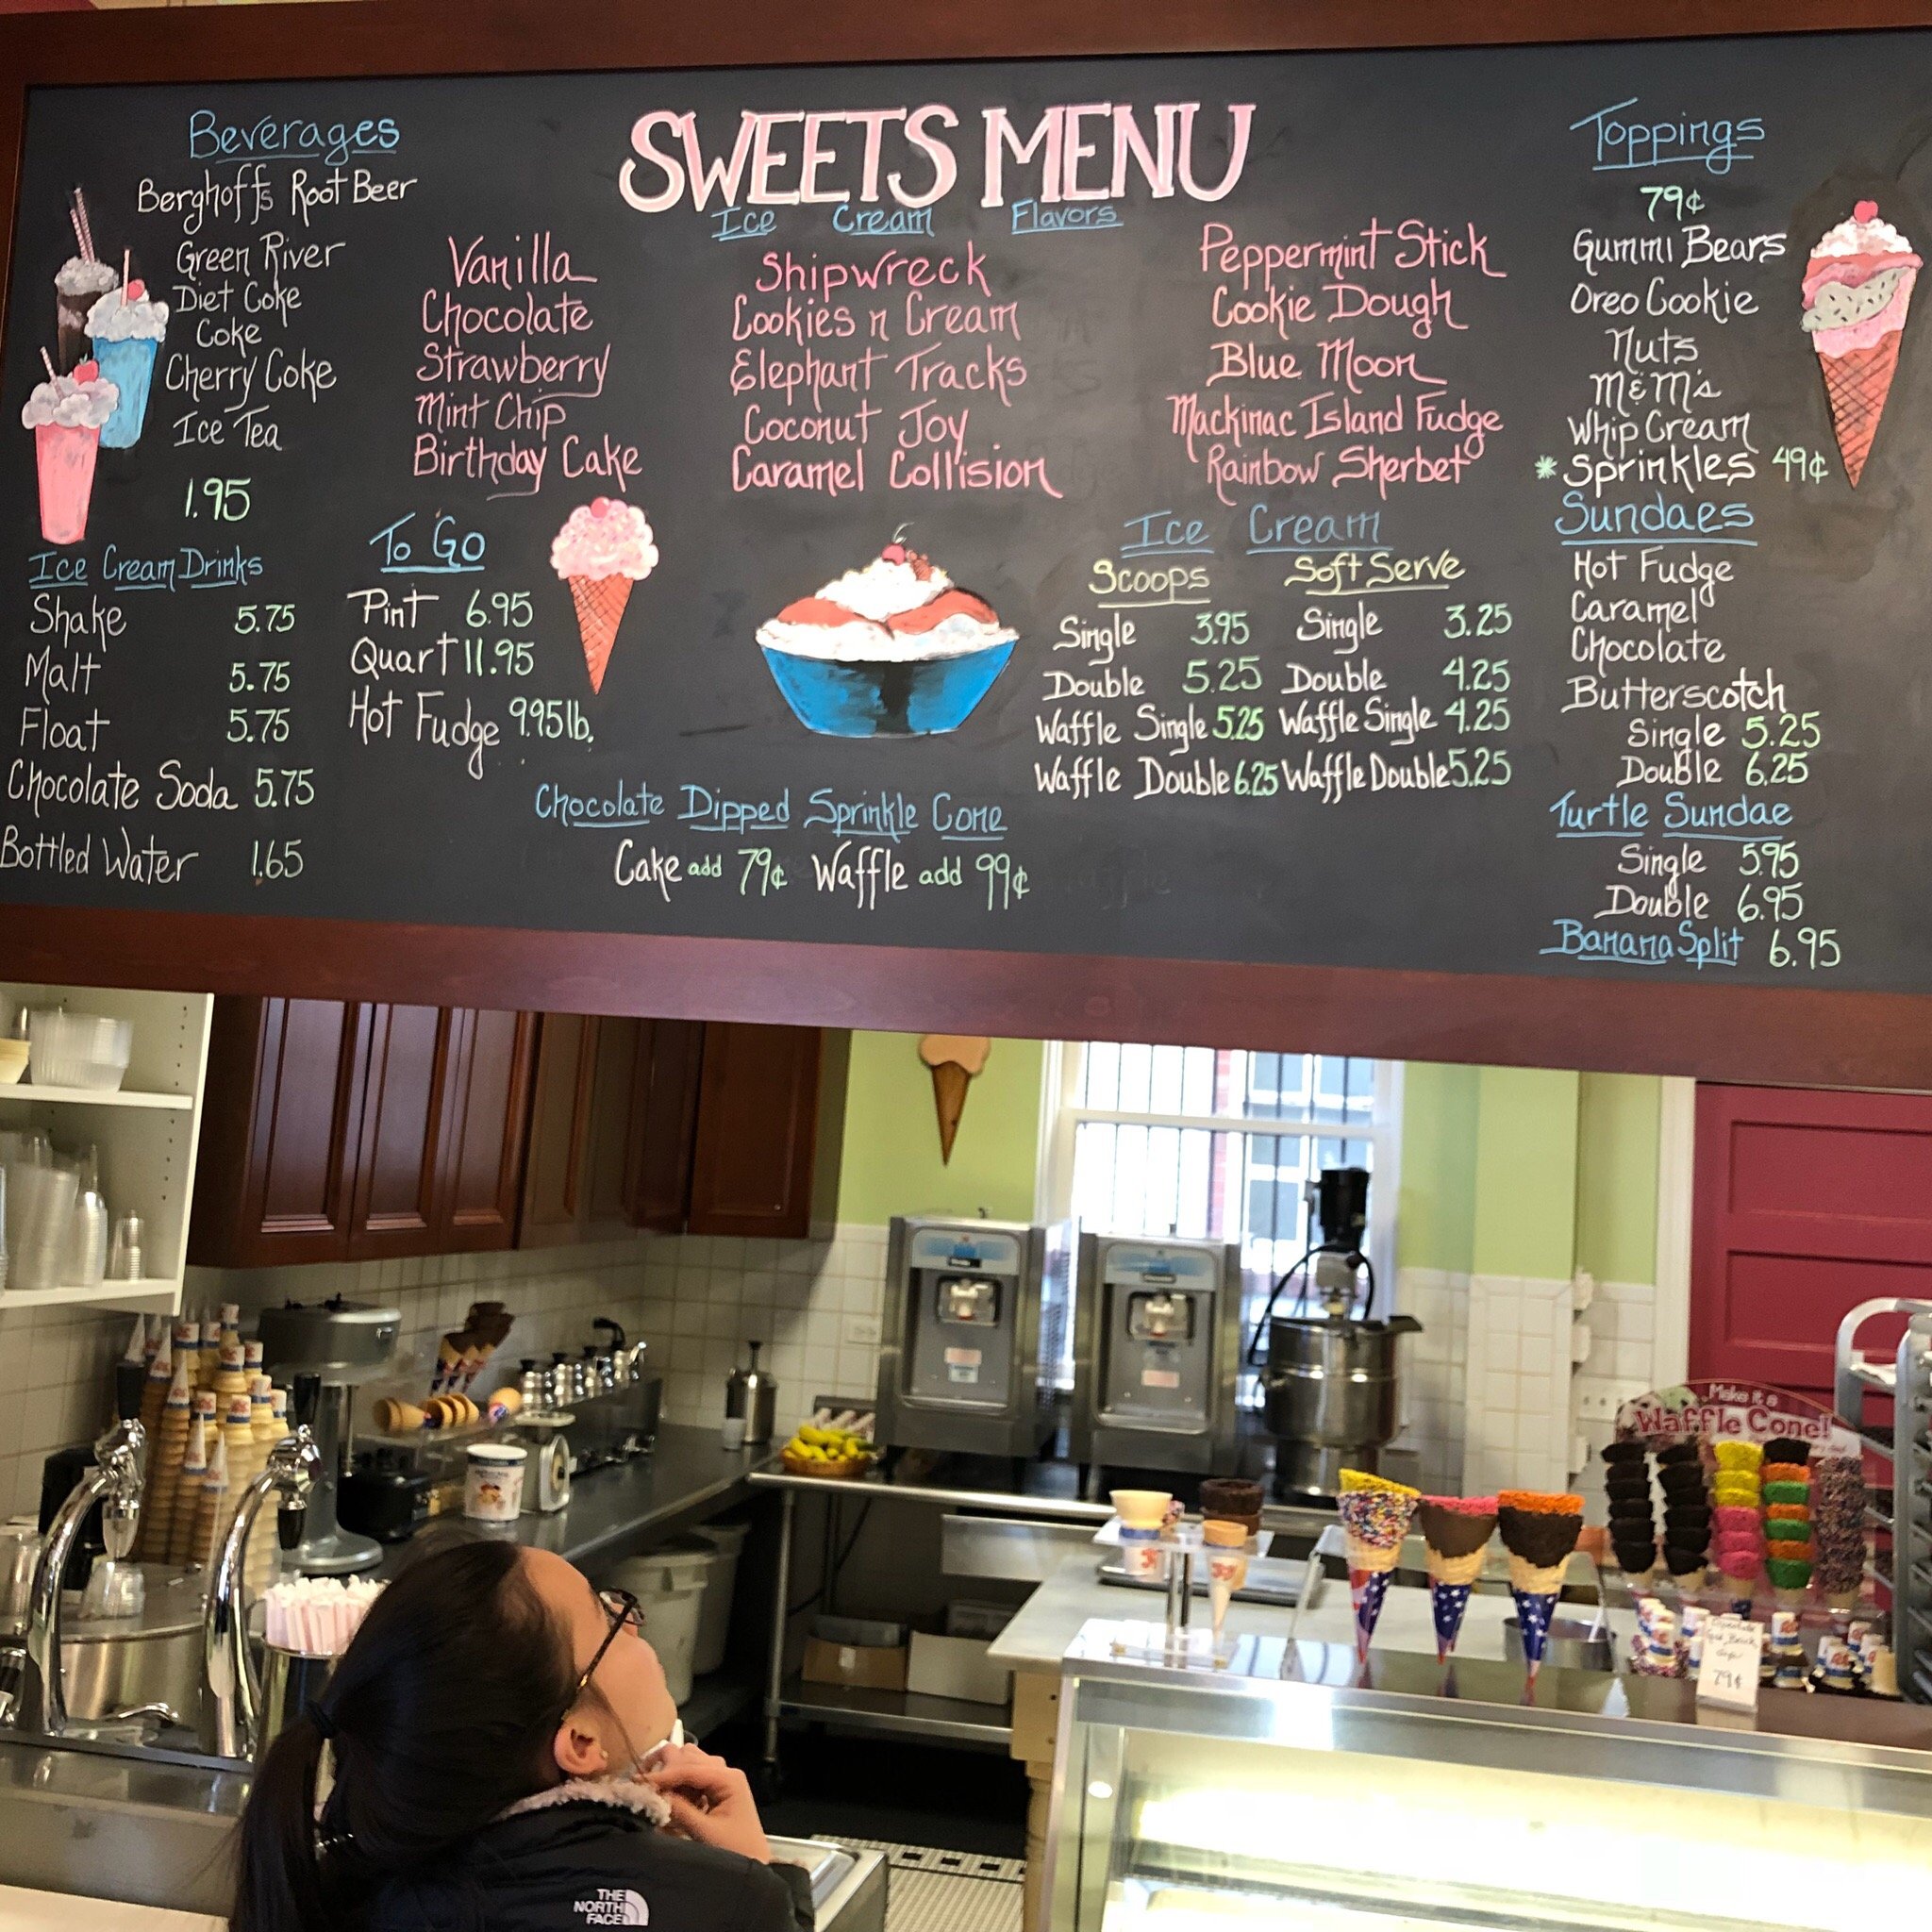 SWEETS MENU
Beverages
Berghoff's Root Beer
Green River
Diet Coke
Coke
Cherry Coke
Ice Tea
1.95
Ice Cream Drinks
Shake 5.75
Malt 5.75
Float 5.75
Chocolate Soda 5.75
Bottled Water 1.65
Ice Cream Flavors
Vanilla
Chocolate
Strawberry
Mint Chip
Birthday Cake
Shipwreck
Cookies n Cream
Elephant Tracks
Coconut Joy
Caramel Collision
Peppermint Stick
Cookie Dough
Blue Moon
Mackinac Island Fudge
Rainbow Sherbet
To Go
Pint 6.95
Quart 11.95
Hot Fudge 9.95 lb.
Chocolate Dipped Sprinkle Cone
Cake add 79¢ Waffle add 99¢
Ice Cream
Scoops
Single 3.95
Double 5.25
Waffle Single 5.25
Waffle Double 6.25
Soft Serve
Single 3.25
Double 4.25
Waffle Single 4.25
Waffle Double 5.25
Toppings
79¢
Gummi Bears
Oreo Cookie
Nuts
M&M's
Whip Cream
* Sprinkles 49¢
Sundaes
Hot Fudge
Caramel
Chocolate
Butterscotch
Single 5.25
Double 6.25
Turtle Sundae
Single 5.95
Double 6.95
Banana Split 6.95
Make it a
Waffle Cone!
79¢
THE
NORTH
FACE